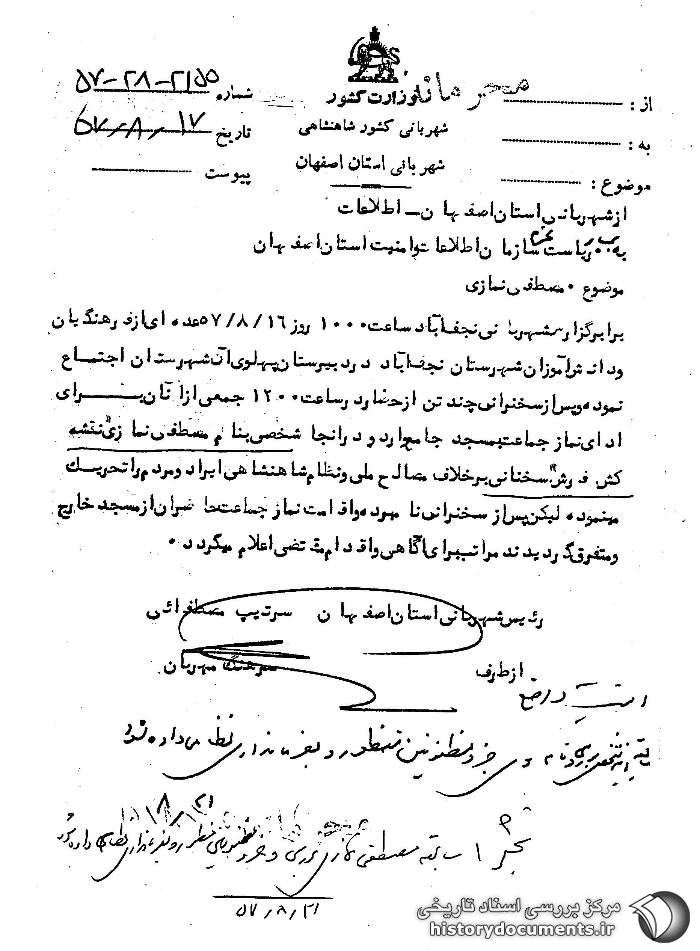 محرمانه
وزارت کشور
شهربانی کشور شاهنشاهی
شهربانی استان اصفهان
از :
به :
موضوع :
شماره ۲۱۵۵-۲۸-۵۷
تاریخ ۵۷٫۸٫۱۷
پیوست
از شهربانی استان اصفهان ـ اطلاعات
به ریاست سازمان اطلاعات و امنیت استان اصفهان
موضوع ۰ مصطفی نمازی
برابر گزارش شهربانی نجف‌آباد ساعت ۱۰۰۰ روز ۵۷/۸/۱۶ عده‌ای از فرهنگیان
و دانش‌آموزان شهرستان نجف‌آباد در دبیرستان پهلوی آن شهرستان اجتماع
نموده و پس از سخنرانی چند تن از حضار در ساعت ۱۲۰۰ جمعی از آنان برای
ادای نماز جماعت به مسجد جامع وارد و در آنجا شخصی بنام مصطفی نمازی "نقشه
کش فرش" سخنانی بر خلاف مصالح ملی و نظام شاهنشاهی ایراد و مردم را تحریک
مینموده لیکن پس از سخنرانی نامبرده و اقامت نماز جماعت حاضران از مسجد خارج
و متفرق گردیدند مراتب برای آگاهی و اقدام مقتضی اعلام میگردد ۰
رئیس شهربانی استان اصفهان سرتیپ مصطفائی
از طرف سرهنگ مهربان
و جزو مظنونین منظور و بفرمانداری نظامی داده شود
۸/۲۱
سابقه مصطفی نمازی بررسی و جزو مظنونین منظور و بفرمانداری نظامی داده شود
۵۷٫۸٫۲۱
مرکز بررسی اسناد تاریخی
historydocuments.ir